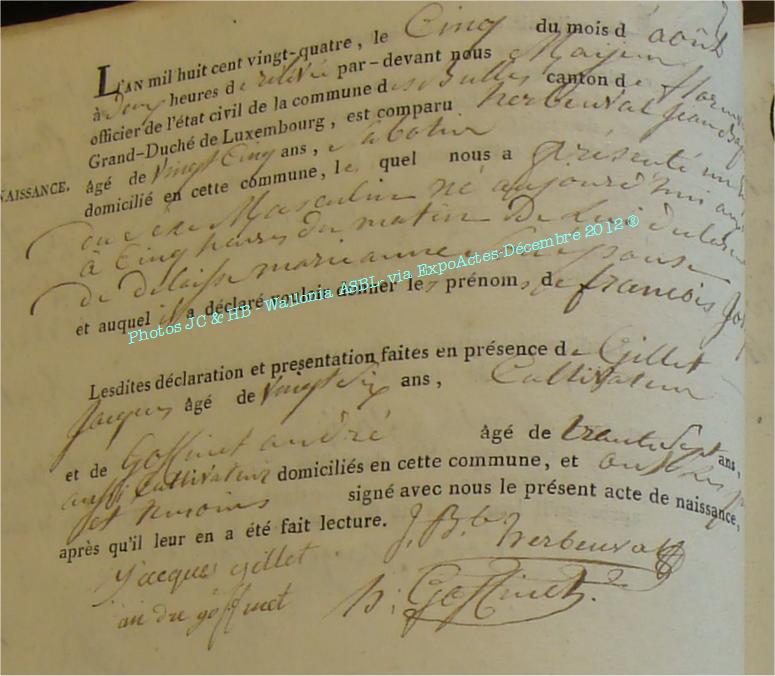 L'AN mil huit cent vingt-quatre, le Cinq du mois d août
à deux heures de relevée par-devant nous Mayeur
officier de l'état civil de la commune des Bulles canton de floren
Grand-Duché de Luxembourg, est comparu herbeuval jean Bap
NAISSANCE. âgé de vingt Cinq ans,
domicilié en cette commune, le quel nous a présenté un
du sexe Masculin né aujourd'hui
à Cinq heures du matin De Lui
de marie anne Son Epouse
et auquel il a déclaré vouloir donner les prénoms de francois Jos
Photos JC & HB - Wallonia ASBL, via ExpoActes-Décembre 2012 ®
Lesdites déclaration et presentation faites en présence de Gillet
Jacques âgé de vingt Six ans, Cultivateur
et de Goffinet andré âgé de trente Sept ans,
aussi Cultivateur domiciliés en cette commune, et ont les
et temoins signé avec nous le présent acte de naissance,
après qu'il leur en a été fait lecture.
J. Bte herbeuval
Jacques gillet
h: Goffinet.
an dre goffinet